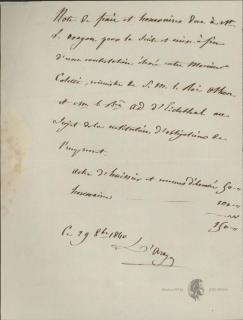 Note de frais et honoraires dus à Mr
L. Dragon pour la suite et mise à fin
d'une contestation élevée entre Monsieur
Coletti, ministre de S. M. le Roi Othon
et M. le Bon Ad d'Eichthal au
sujet de la restitution d'obligations de
l'emprunt.
actes d'huissier et menus déboursés 50
honoraires
250
Ce 29 8bre 1840